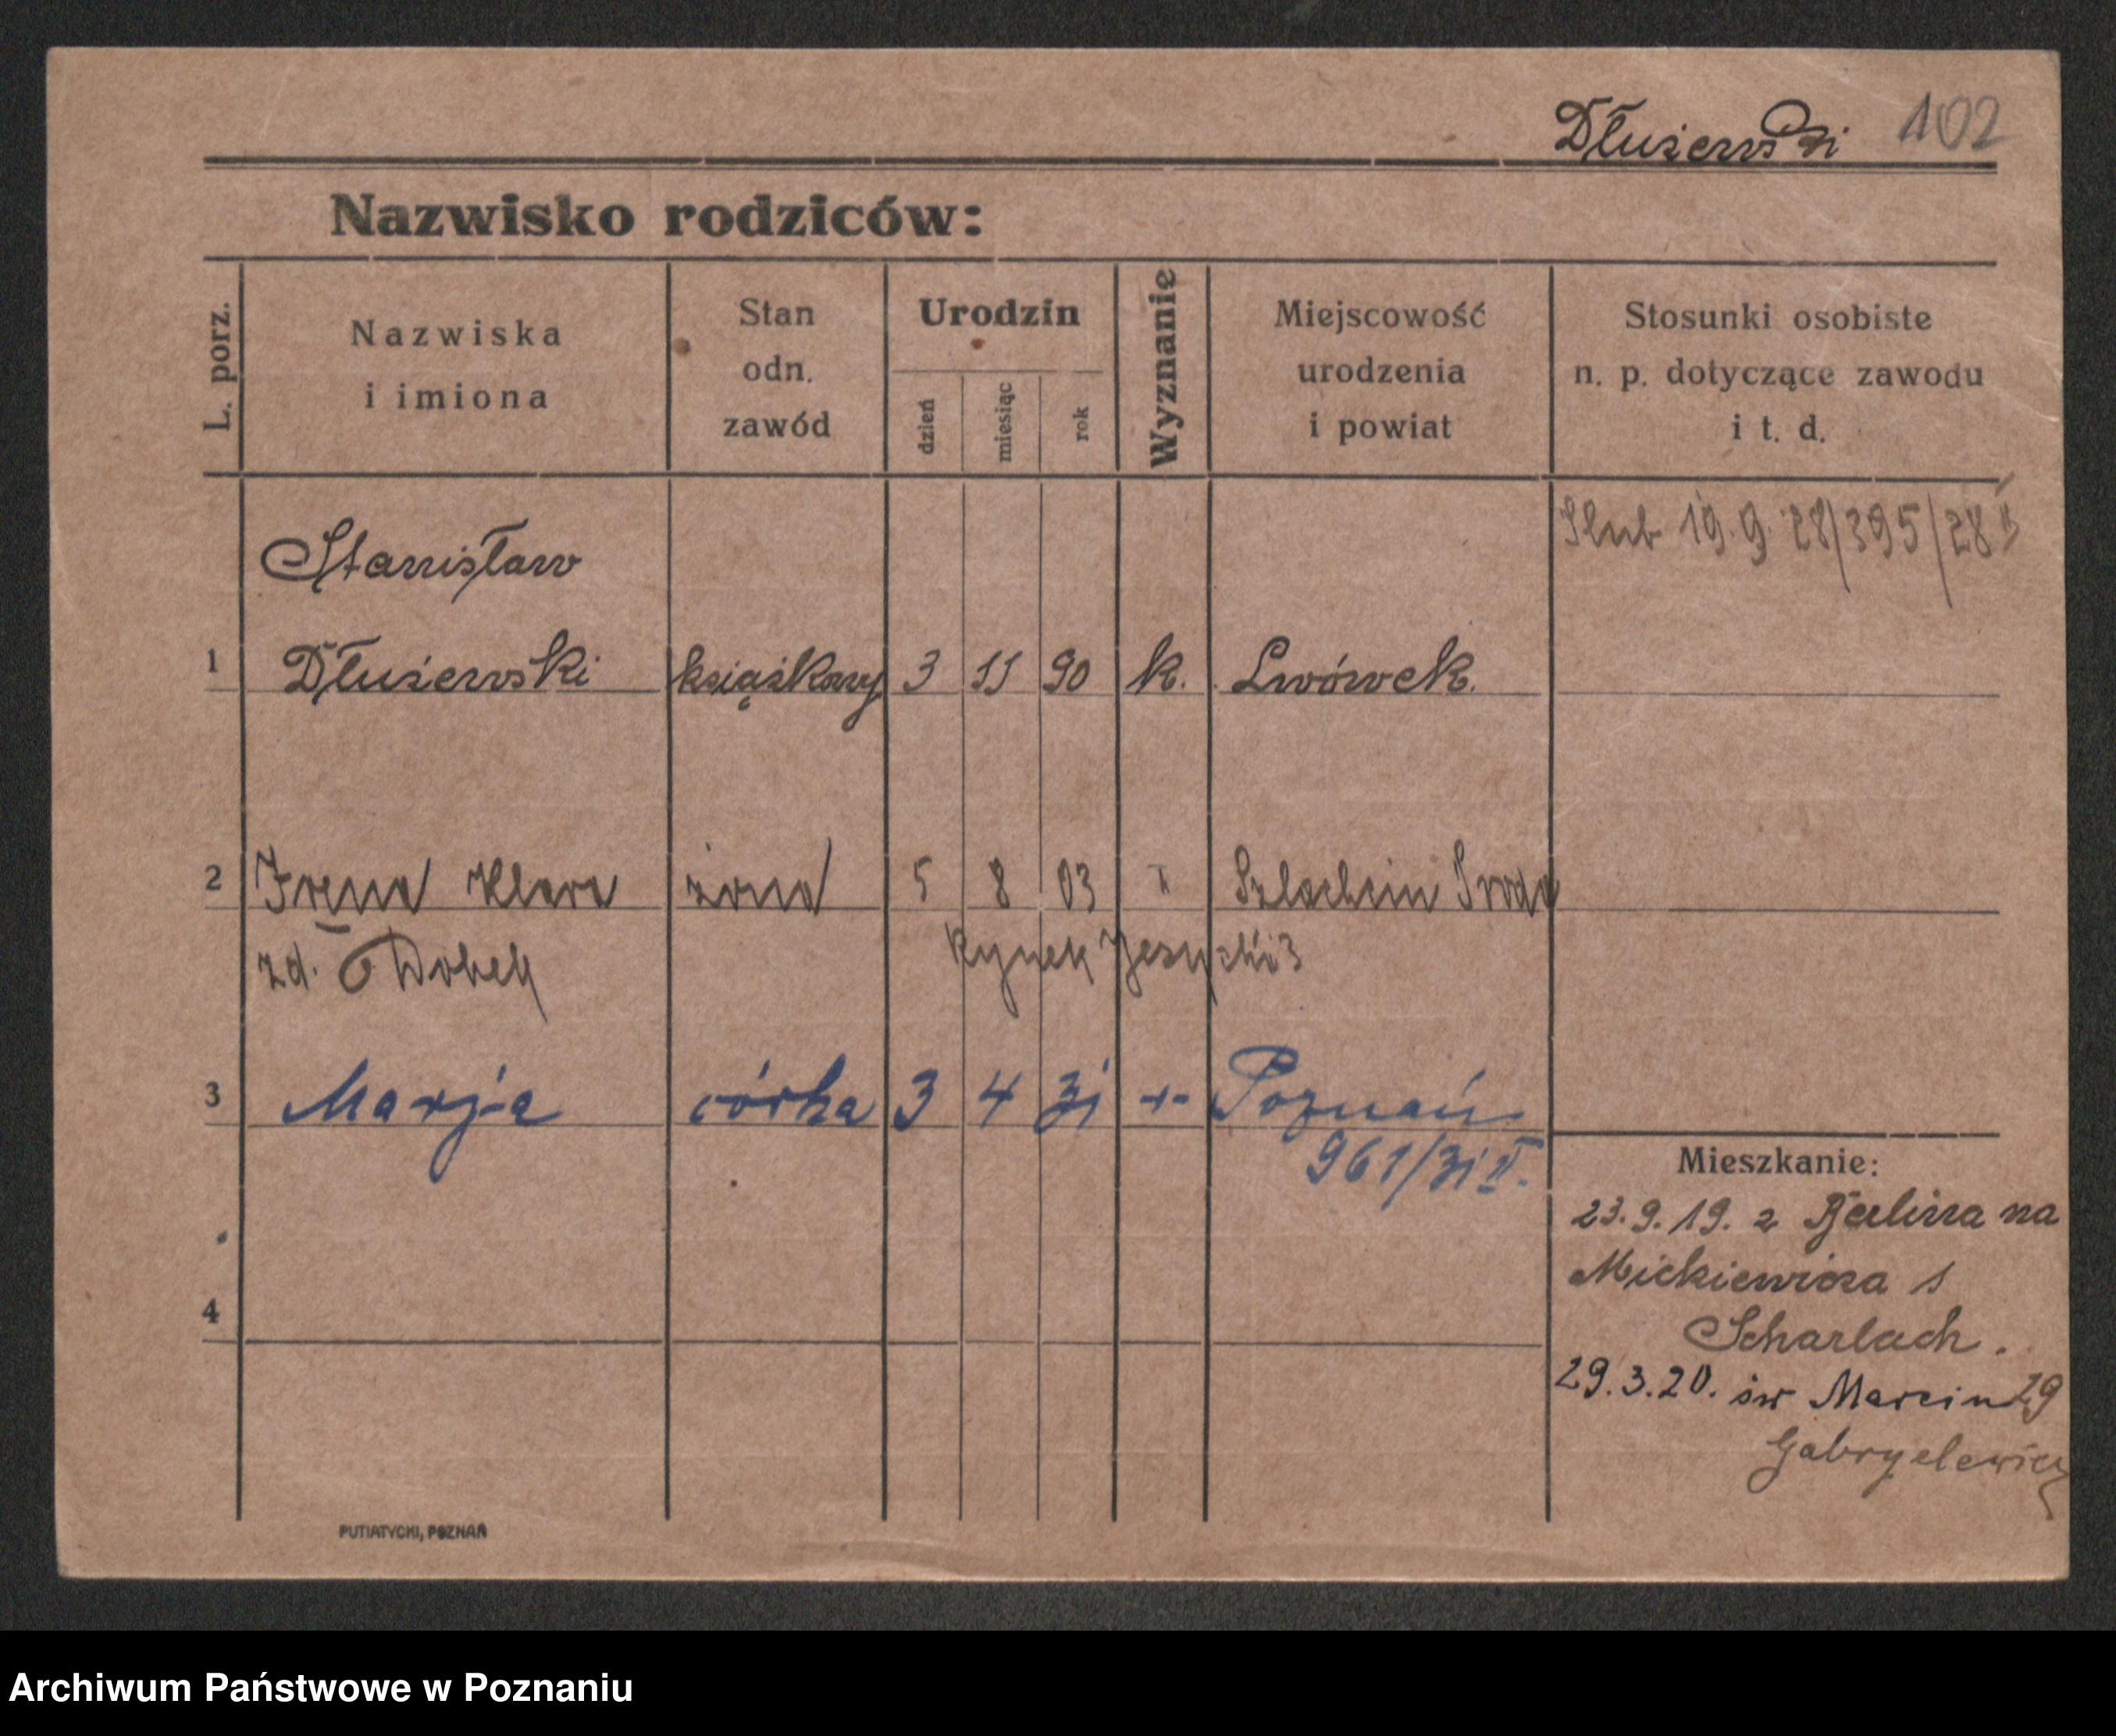 Dłużewski 102
Nazwisko rodziców:
L. porz.
Nazwiska
i imiona
Stan
odn.
zawód
Urodzin
dzień
miesiąc
rok
Wyznanie
Miejscowość
urodzenia
i powiat
Stosunki osobiste
n. p. dotyczące zawodu
i t. d.
Ślub 19.9.28/395/28 II
Stanisław
1 Dłużewski książkowy 3 11 90 k. Lwówek.
2 Irena Klara żona 5 8 03 Szlachcin Środa
zd. Dobek Rynek Jeżycki 3
3 Marja córka 3 4 31 Poznań
961/31 II.
4
Mieszkanie:
23.9.19. z Berlina na
Mickiewicza 1
Scharlach.
29.3.20. św Marcin 29
Gabryelewicz
PUTIATYCKI, POZNAŃ
Archiwum Państwowe w Poznaniu